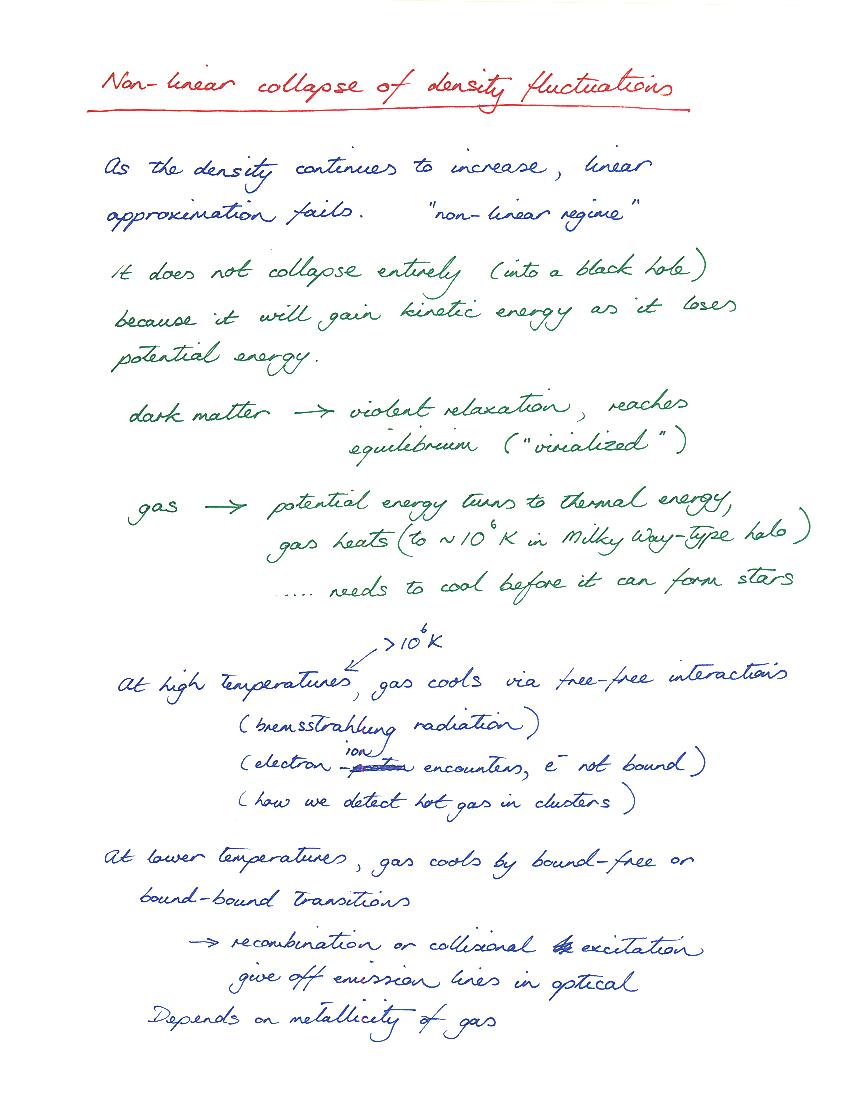 Non-linear collapse of density fluctuations
As the density continues to increase, linear
approximation fails. "non-linear regime"
It does not collapse entirely (into a black hole)
because it will gain kinetic energy as it loses
potential energy.
dark matter → violent relaxation, reaches
equilibrium ("virialized")
gas → potential energy turns to thermal energy,
gas heats (to ~10⁶ K in Milky Way-type halo)
..... needs to cool before it can form stars
>10⁶K
At high temperatures, gas cools via free-free interactions
(bremsstrahlung radiation)
(electron-ion encounters, e⁻ not bound)
(how we detect hot gas in clusters)
At lower temperatures, gas cools by bound-free or
bound-bound transitions
→ recombination or collisional excitation
give off emission lines in optical
Depends on metallicity of gas